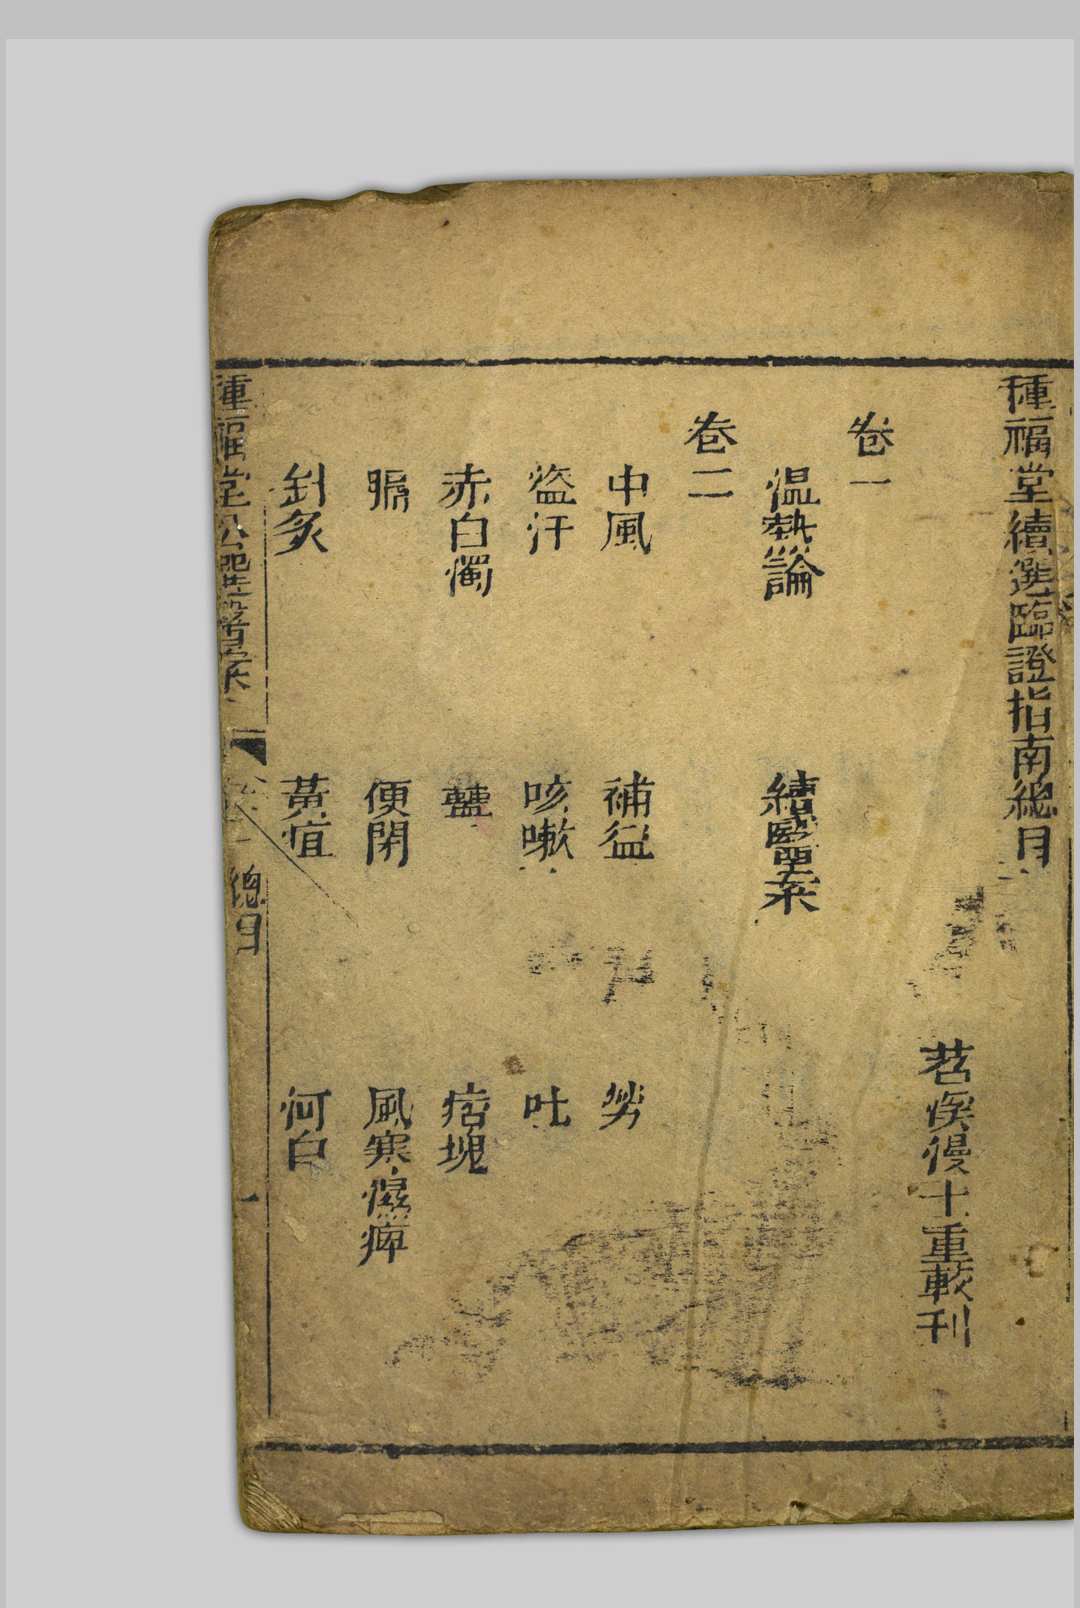 種福堂續選臨證指南總目
苕溪漫士重較刊
卷一
温熱論 續醫案
卷二
中風 補益 勞
盜汗 咳嗽 吐
赤白濁 痞塊
脹 便閉 風寒濕痺
針灸 黃疸 何白
種福堂公選醫案 總目 一